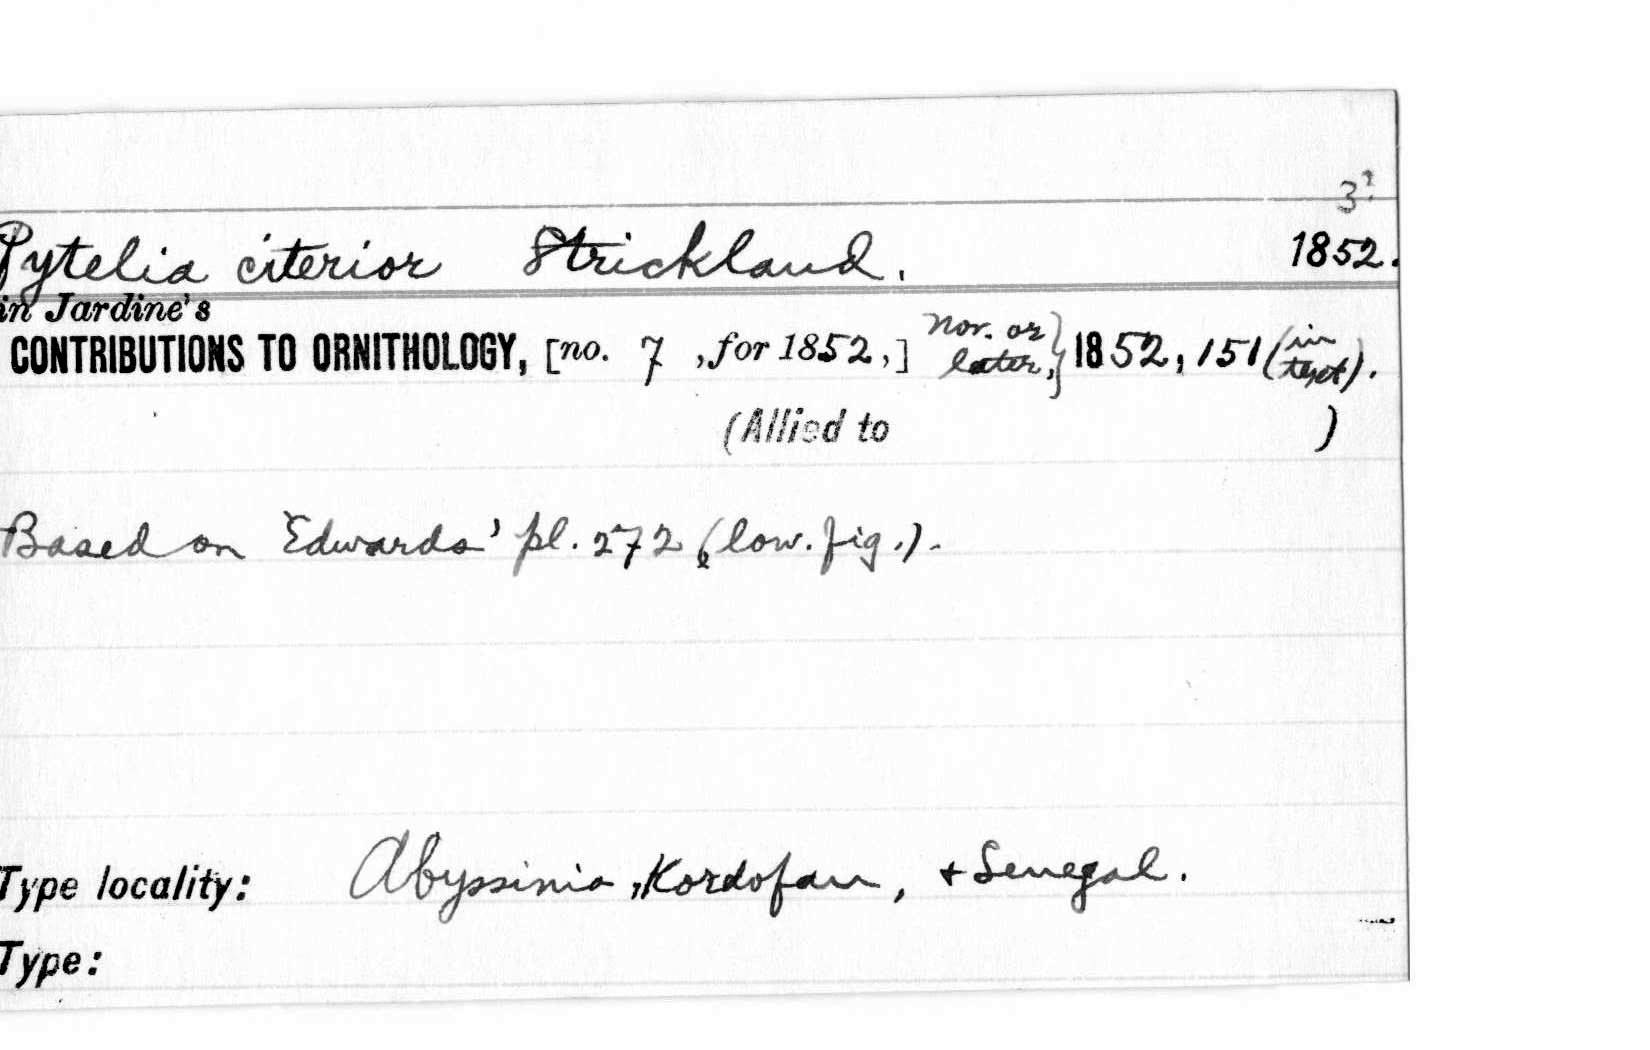 3?
Pytelia citerior Strickland. 1852.
in Jardine's
CONTRIBUTIONS TO ORNITHOLOGY, [no. 7 , for 1852,] Nov. or later,} 1852, 151 (in text).
(Allied to )
Based on Edwards' pl. 272 (low. fig.).
Type locality: Abyssinia, Kordofan, + Senegal.
Type: